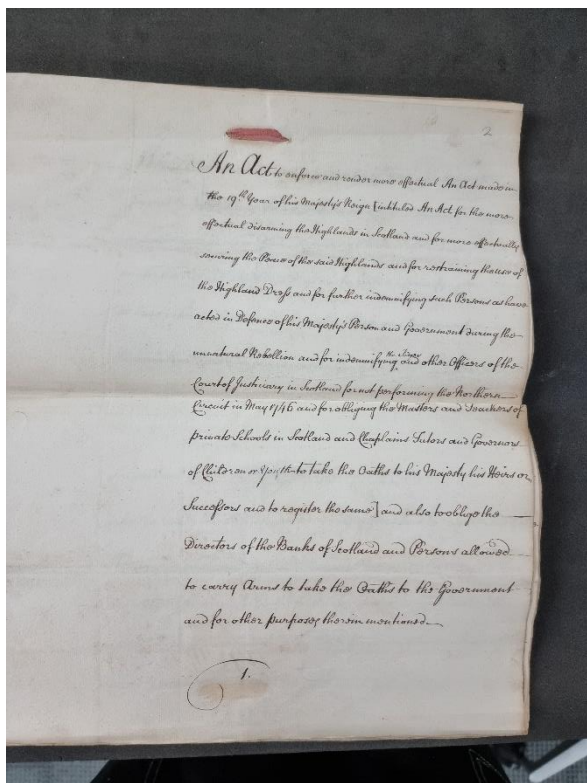 2
An Act to enforce and render more effectual An Act made in
the 19th Year of his Majesty's Reign [intituled An Act for the more
effectual disarming the Highlands in Scotland and for more effectually
securing the Peace of the said Highlands and for restraining the use of
the Highland Dress and for further indemnifying such Persons as have
acted in Defence of his Majesty's Person and Government during the
unnatural Rebellion and for indemnifying the Judges and other Officers of the
Court of Justiciary in Scotland for not performing the Northern
Circuit in May 1746 and for obliging the Masters and Teachers of
private Schools in Scotland and Chaplains Tutors and Governors
of Children or Youth to take the Oaths to his Majesty his Heirs or
Successors and to register the same] and also to oblige the
Directors of the Banks of Scotland and Persons allowed
to carry Arms to take the Oaths to the Government
and for other purposes therein mentioned
1.